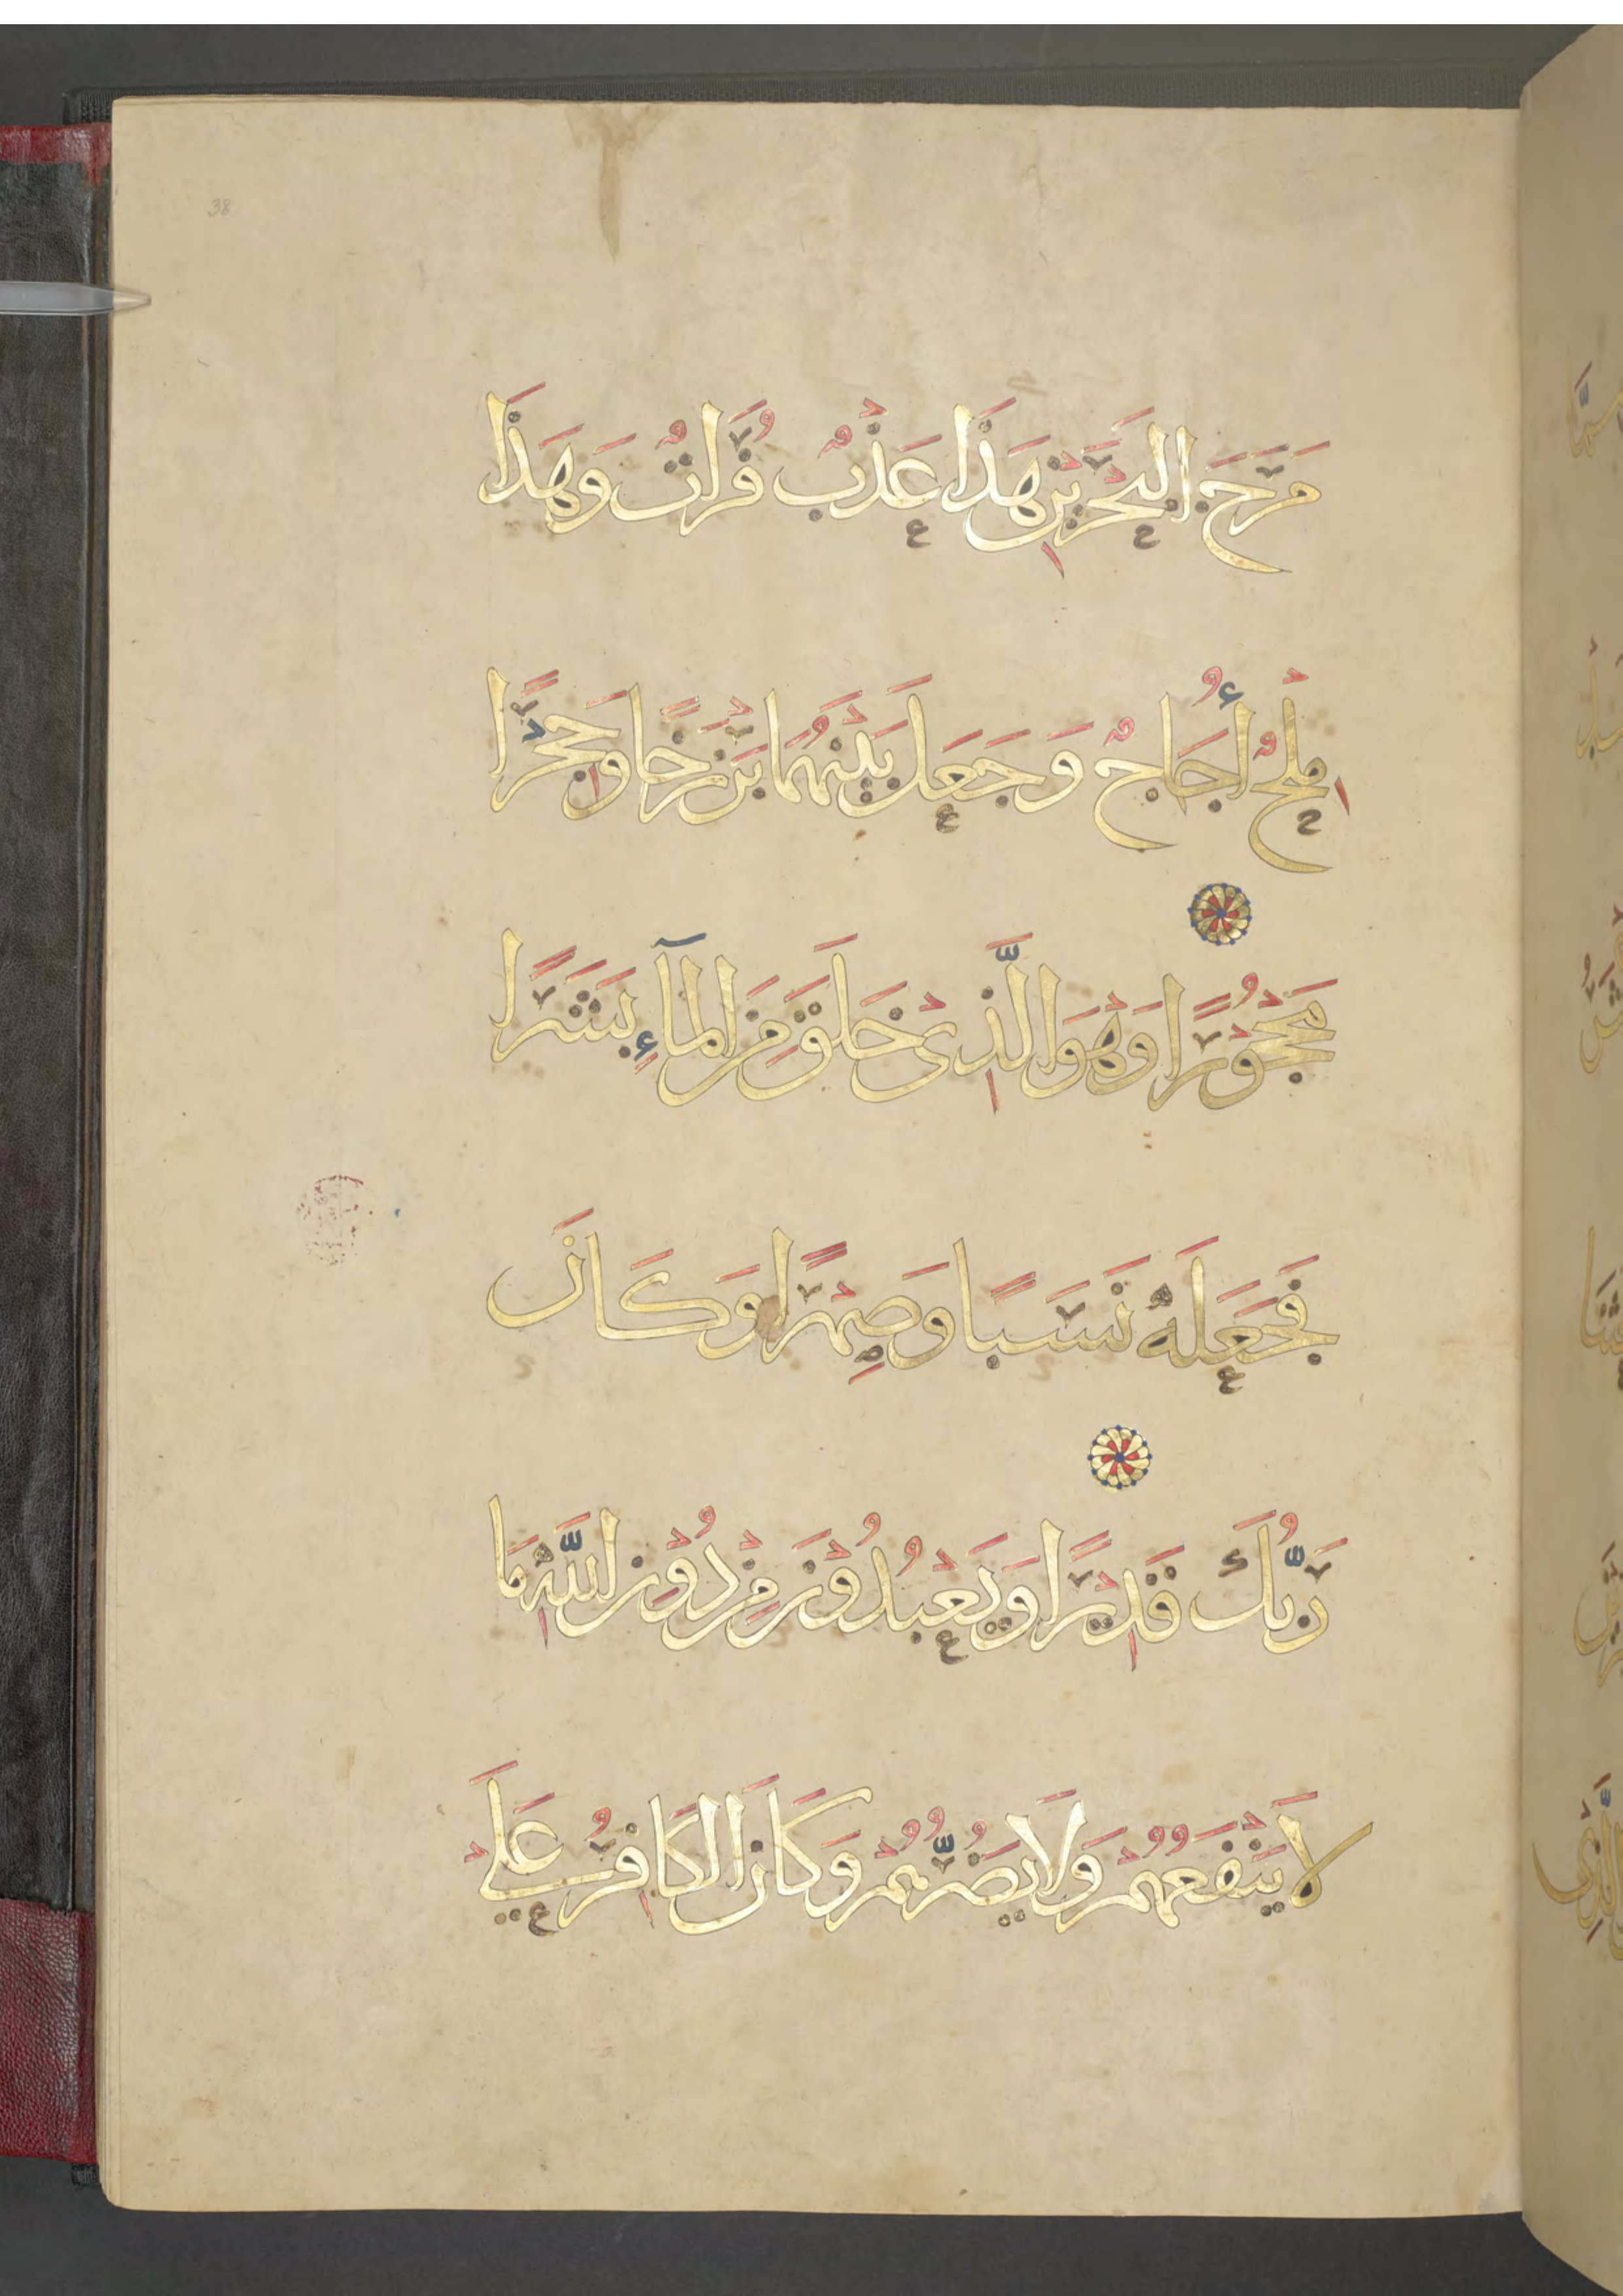 38
مَرَجَ الْبَحْرَيْنِ هَذَا عَذْبٌ فُرَاتٌ وَهَذَا
مِلْحٌ أُجَاجٌ وَجَعَلَ بَيْنَهُمَا بَرْزَخًا وَحِجْرًا
مَحْجُوْرًا وَهْوَ الَّذِيْ خَلَقَ مِنَ الْمَآءِ بَشَرًا
فَجَعَلَهُ نَسَبًا وَصِهْرًا وَكَانَ
رَبُّكَ قَدِيْرًا وَيَعْبُدُوْنَ مِنْ دُوْنِ اللَّهِ مَا
لَا يَنْفَعُهُمُ وْلَا يَضُرُّهُمُ وْكَانَ الْكَافِرُ عَلَى